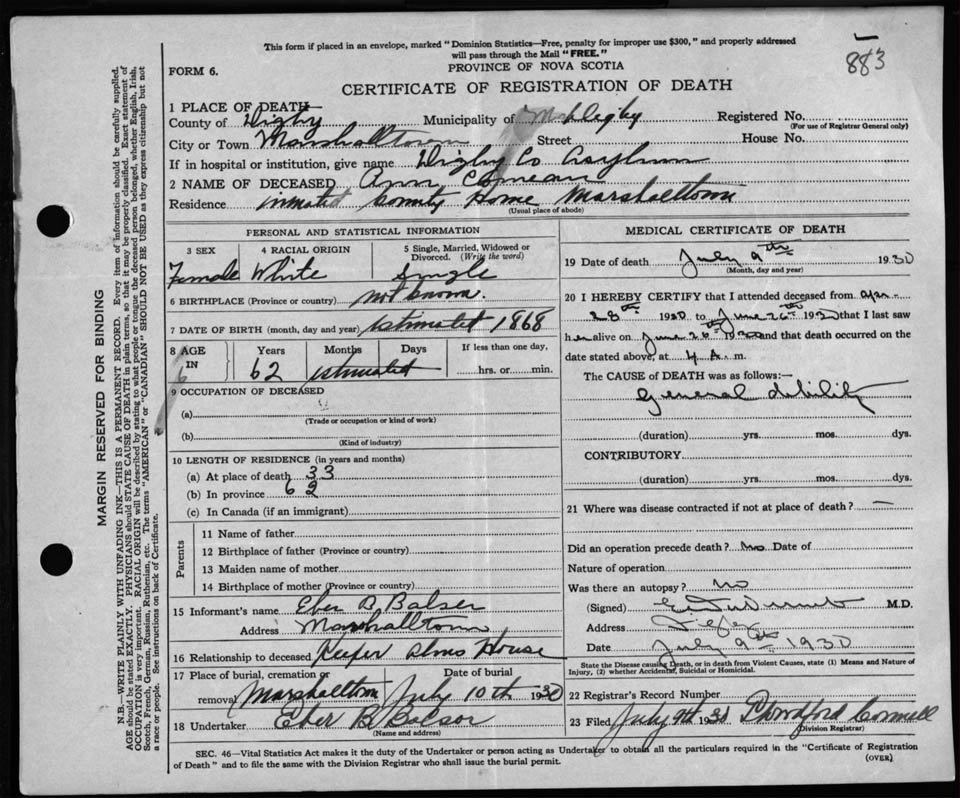 This form if placed in an envelope, marked "Dominion Statistics—Free, penalty for improper use $300," and properly addressed
will pass through the Mail "FREE."
883
FORM 6.
PROVINCE OF NOVA SCOTIA
CERTIFICATE OF REGISTRATION OF DEATH
1 PLACE OF DEATH
County of Digby Municipality of Digby Registered No.
(For use of Registrar General only)
City or Town Marshalltown Street House No.
If in hospital or institution, give name Digby Co Asylum
2 NAME OF DECEASED Ann Comeau
Residence inmated County Home Marshalltown
(Usual place of abode)
PERSONAL AND STATISTICAL INFORMATION
3 SEX 4 RACIAL ORIGIN 5 Single, Married, Widowed or
Divorced. (Write the word)
Female White Single
6 BIRTHPLACE (Province or country) not known.
7 DATE OF BIRTH (month, day and year) estimated 1868
8 AGE IN Years Months Days If less than one day,
62 estimated hrs. or min.
9 OCCUPATION OF DECEASED
(a)
(Trade or occupation or kind of work)
(b)
(Kind of industry)
10 LENGTH OF RESIDENCE (in years and months)
(a) At place of death 33
(b) In province 62
(c) In Canada (if an immigrant)
Parents
11 Name of father
12 Birthplace of father (Province or country)
13 Maiden name of mother
14 Birthplace of mother (Province or country)
15 Informant's name Eber B Balser
Address Marshalltown
16 Relationship to deceased Keeper Alms House
17 Place of burial, cremation or Date of burial
removal Marshalltown July 10th 1930
18 Undertaker Eber B Balsor
(Name and address)
MEDICAL CERTIFICATE OF DEATH
19 Date of death July 9th 1930
(Month, day and year)
20 I HEREBY CERTIFY that I attended deceased from Apr
28th 1930 to June 26th 1930 that I last saw
her alive on June 26th 1930 and that death occurred on the
date stated above, at 4 A. m.
The CAUSE of DEATH was as follows:—
General debility
(duration) yrs. mos. dys.
CONTRIBUTORY
(duration) yrs. mos. dys.
21 Where was disease contracted if not at place of death? —
Did an operation precede death? No Date of
Nature of operation
Was there an autopsy? no
(Signed) M.D.
Address
Date July 9th 1930
State the Disease causing Death, or in death from Violent Causes, state (1) Means and Nature of
Injury, (2) whether Accidental, Suicidal or Homicidal.
22 Registrar's Record Number
23 Filed July 9th 1930 Cornwell
(Division Registrar)
SEC. 46—Vital Statistics Act makes it the duty of the Undertaker or person acting as Undertaker to obtain all the particulars required in the "Certificate of Registration
of Death" and to file the same with the Division Registrar who shall issue the burial permit.
(OVER)
MARGIN RESERVED FOR BINDING
N.B.—WRITE PLAINLY WITH UNFADING INK—THIS IS A PERMANENT RECORD. Every item of information should be carefully supplied.
AGE should be stated EXACTLY. PHYSICIANS should STATE CAUSE OF DEATH in plain terms, so that it may be properly classified. Exact statement of
OCCUPATION is very important. RACIAL ORIGIN will be described by stating to what people or tongue the deceased person belonged, whether English, Irish,
Scotch, French, German, Russian, Ruthenian, etc. The terms "AMERICAN" or "CANADIAN" SHOULD NOT BE USED as they express citizenship but not
a race or people. See instructions on back of Certificate.